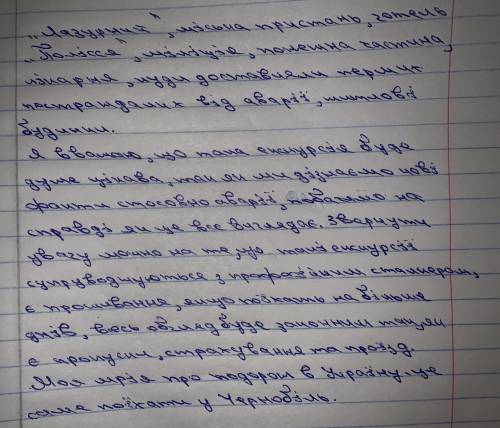 „Лазурний", міська пристань, готель
„Полісся", міліція, пожежна частина,
лікарня, куди доставляли перших
постраждалих від аварії, житлові
будинки.
Я вважаю, що така екскурсія буде
дуже цікава, так як ми дізнаємо нові
факти стосовно аварії, побачимо на
справді як це все виглядає. Звернути
увагу можно на те, що такі екскурсії
супруводжуються з профозійним сталкером,
є проживання, якщо поїхать на більше
днів, весь обгляд буде законним так, як
є пропуски, страхування та проїзд.
Моя мрія про подорож в Україну - це
саме поїхати у Чернобіль.